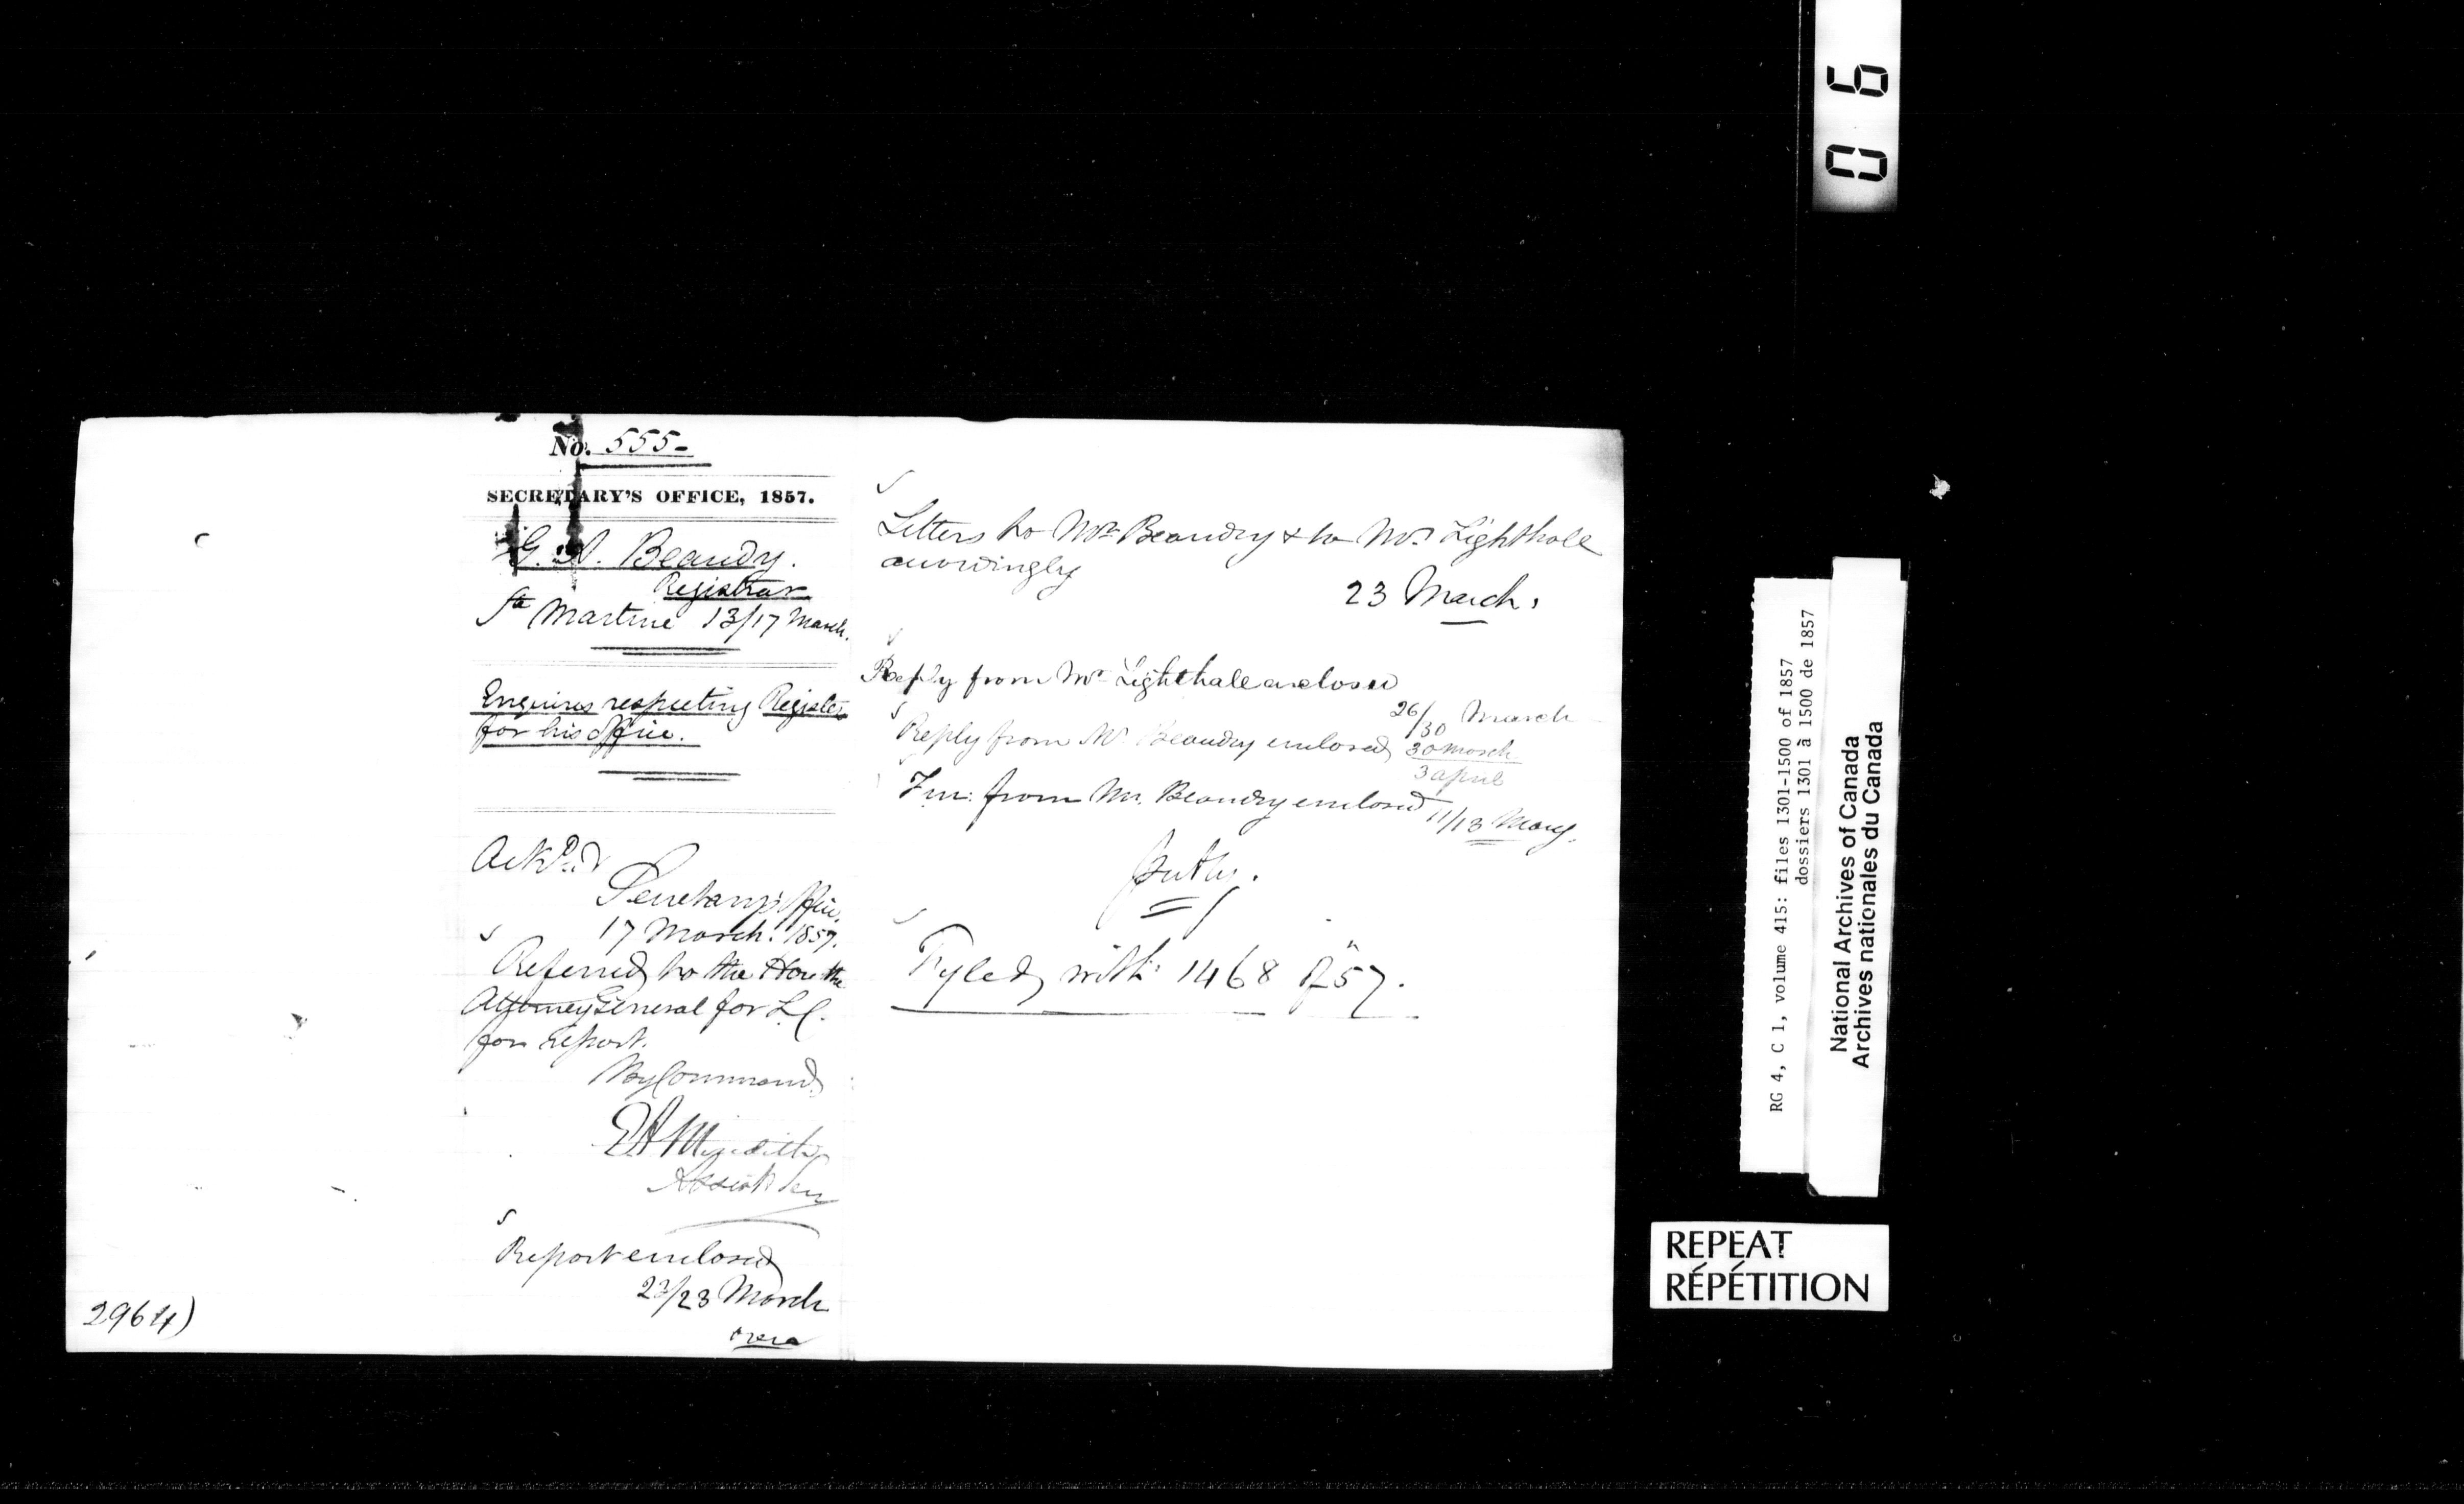 No. 555-
SECRETARY'S OFFICE, 1857.
G. A. Beaudy.
Registrar
Ste Martine 13/17 March.
Enquires respecting Register
for his office.
Ackd.
Secretary's Office,
17 March. 1857.
Referred to the Hon the
Attorney General for L.C.
for Report.
By Command,
E A Meredith
Assist Secy
Report enclosed
23/23 March
over
2964)
Letters to Mr. Beaudry & to Mr. Lighthall
accordingly
23 March.
Reply from Mr. Lighthall enclosed
26/30 March
Reply from Mr Beaudry enclosed 30 March
3 april
from Mr. Beaudry enclosed 11/13 May.
Fyled with 1468 of 57.
06
RG 4, C 1, volume 415: files 1301-1500 of 1857
dossiers 1301 à 1500 de 1857
National Archives of Canada
Archives nationales du Canada
REPEAT
RÉPÉTITION